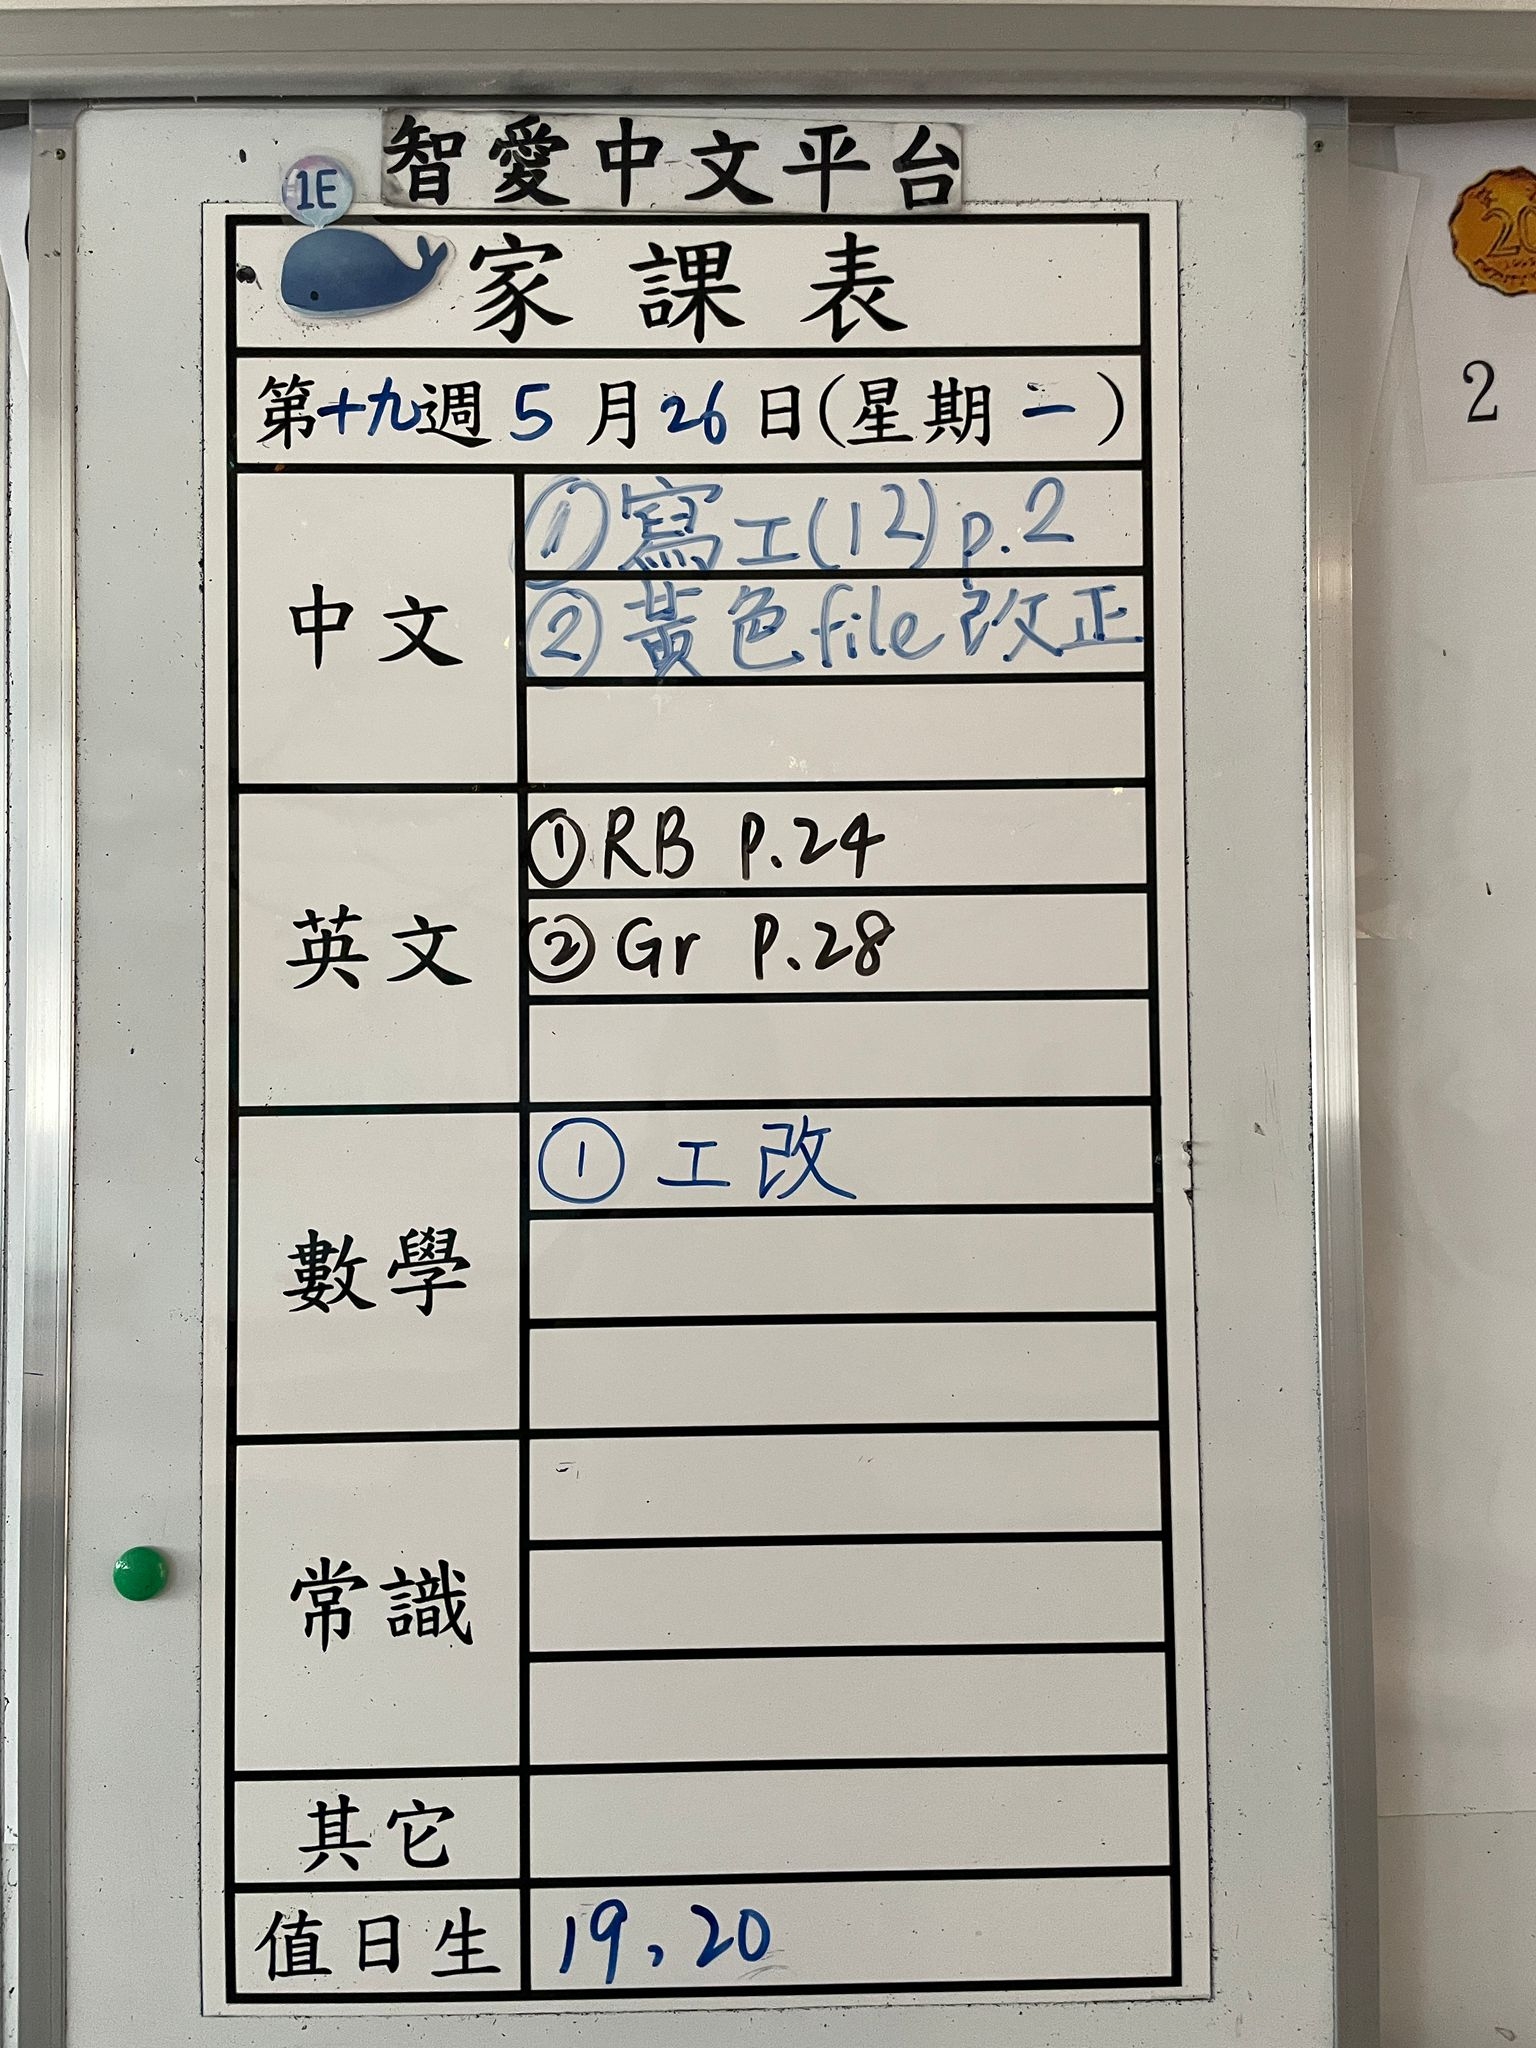 智愛中文平台
1E
家課表
第十九週 5 月 26 日(星期一)
中文
①寫工(12)p.2
②黃色file改正
英文
①RB P.24
②Gr P.28
數學
① 工改
常識
其它
值日生
19,20
20
2